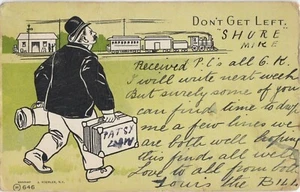 DON'T GET LEFT.
"SHURE
MIKE
Received P.C's all O.K.
I will write next week
But surely some of you
can find time to drop
me a few lines we
are both well hoping
this finds all well
Love to all from both
Louis the
PATSY
646